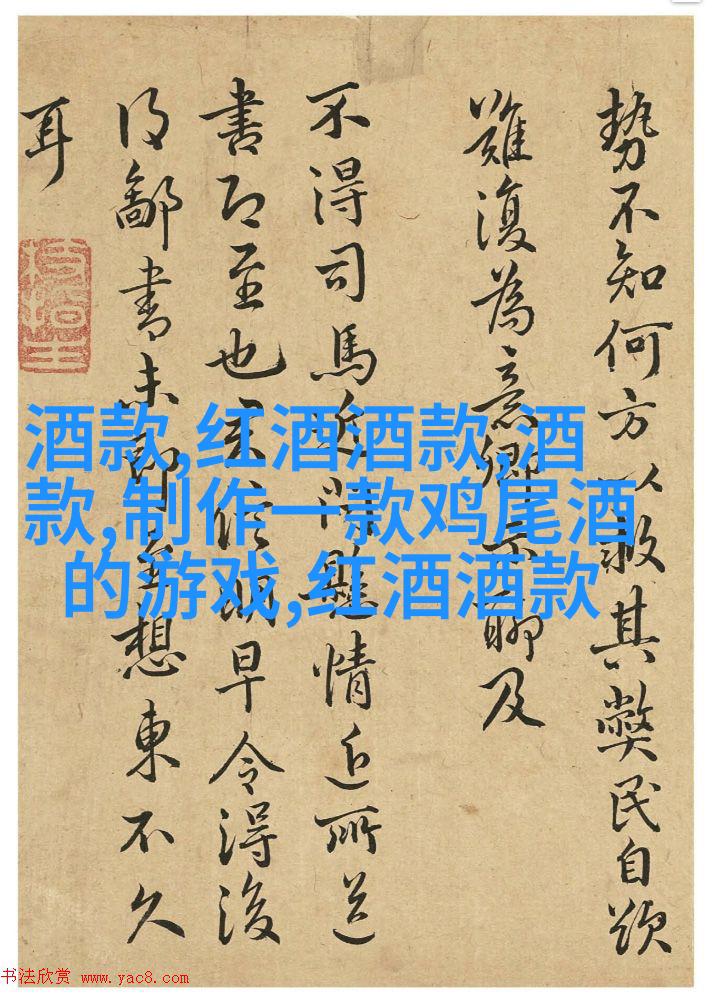 勢不知何方以救其弊民自
難復為意卿示聊及
不得司馬近懸情近所送
書即至也信明早令得後
鄙書未即至想東不久
耳
酒款,红酒酒款,酒
款,制作一款鸡尾酒
的游戏,红酒酒款
书法欣赏 www.yac8.com